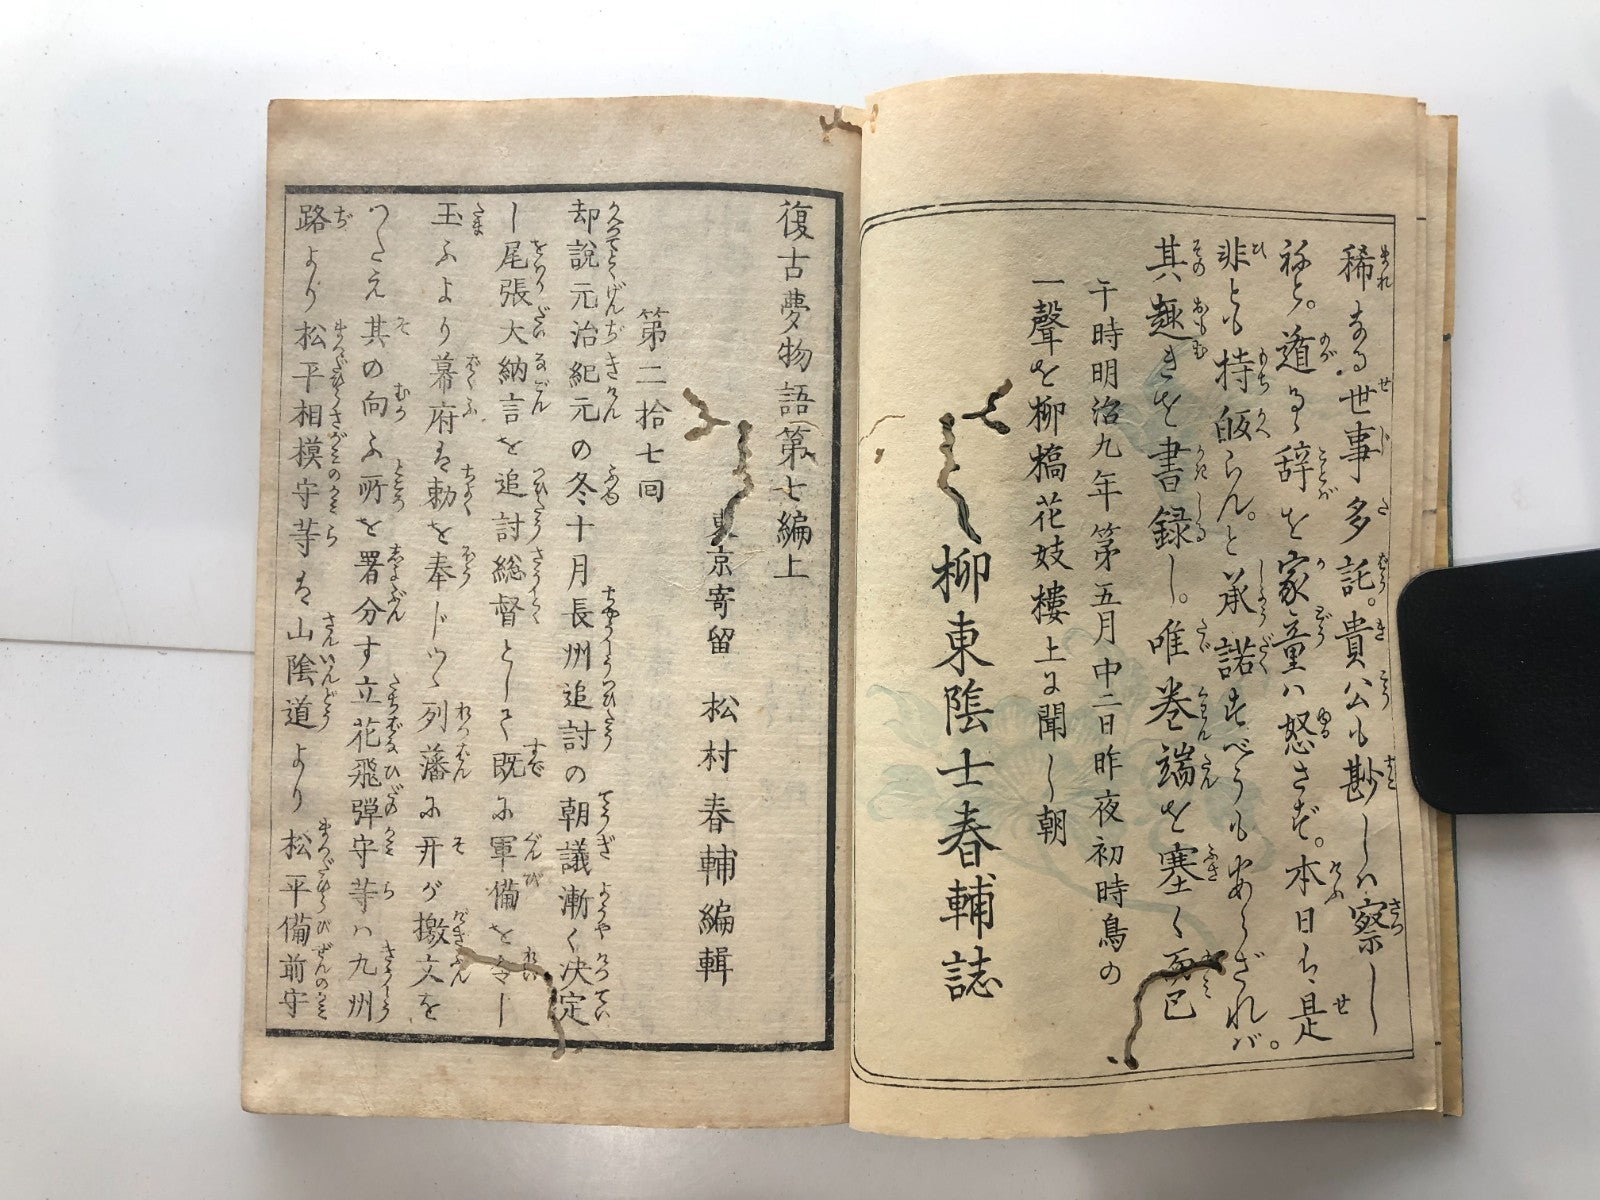 稀なる世事多託。貴公も尠しハ察し
ねと。道るゝ辞を家童ハ怒さず。本日ハ是
非とも持皈らん。と承諾すべうもあらざれバ。
其趣きを書録し。唯巻端を塞く而已
于時明治九年第五月中二日昨夜初時鳥の
一聲を柳槗花妓樓上に聞し朝
柳東陰士春輔誌
復古夢物語第七編上
東京寄留 松村春輔編輯
第二拾七回
却說元治紀元の冬十月長州追討の朝議漸く决定
し尾張大納言を追討総督として既に軍備を令し
玉ふより幕府は勅を奉じつゝ列藩に开が檄文を
つたえ其の向ふ所を署分す立花飛彈守等ハ九州
路より松平相摸守等は山陰道より松平備前守